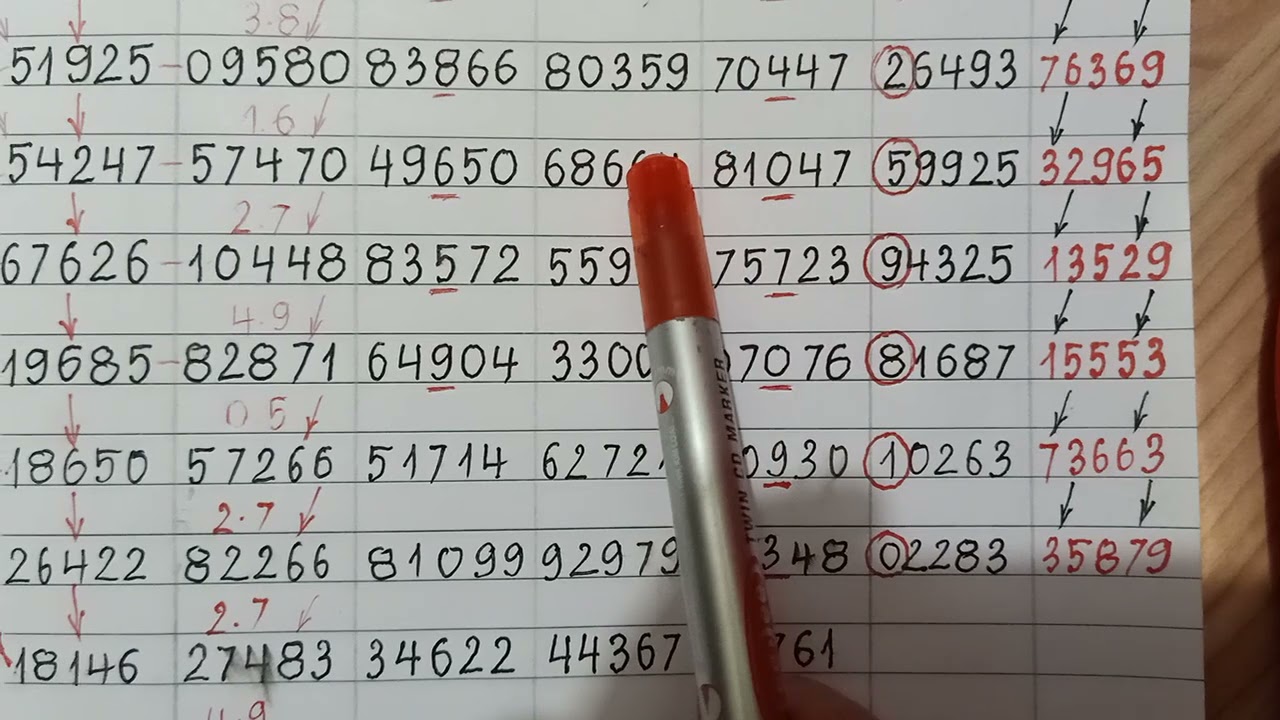 3.8
51925 - 09580 83866 80359 70447 26493 76369
1.6
54247 - 57470 49650 81047 59925 32965
2.7
67626 - 10448 83572 75723 94325 13529
4.9
19685 - 82871 64904 81687 15553
0 5
18650 57266 51714 10263 73663
2.7
26422 82266 81099 92979 02283 35879
2.7
18146 27483 34622 44367
TWIN CD MARKER